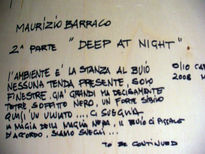 MAURIZIO BARRACO
2ª PARTE "DEEP AT NIGHT"
OLIO
2008
L'AMBIENTE E' LA STANZA AL BUIO
NESSUNA TENDA PRESENTE, SOLO
FINESTRE GRANDI MA DECISAMENTE
TETRE SOFFITTO NERO, UN FORTE SIBILO
QUASI UN ULULATO.... CI SVEGLIA
MAGIA DELLA MAGIA NERA, IL BUIO CI
D'ACCORDO, SIAMO SVEGLI...
TO BE CONTINUED